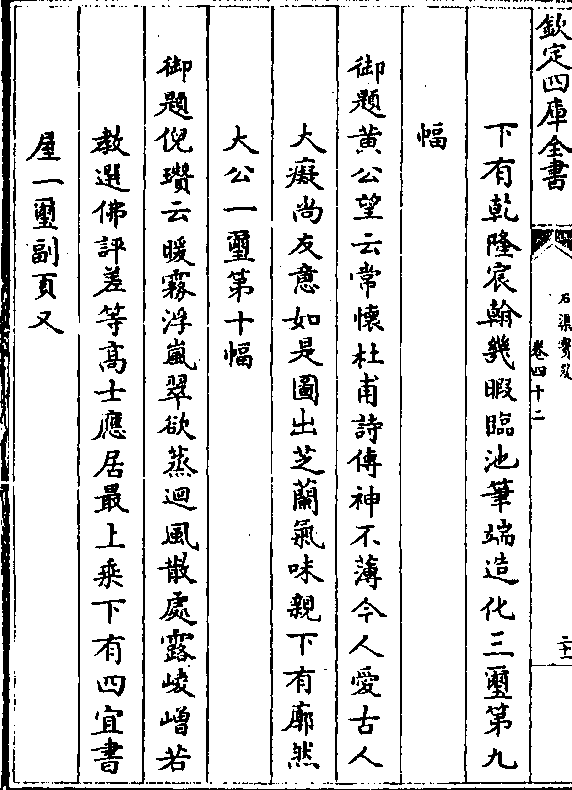 欽定四庫全書
石渠寳笈
卷四十二
二十一
下有乾隆宸翰幾暇臨池筆端造化三璽第九
幅
御題黄公望云常懷杜甫詩傳神不薄今人愛古人
大癡尚友意如是圖出芝蘭氣味親下有廓然
大公一璽第十幅
御題倪瓚云暖霧浮嵐翠欲蒸迴風散處露崚嶒若
教選佛評差等高士應居最上乘下有四宜書
屋一璽副頁又